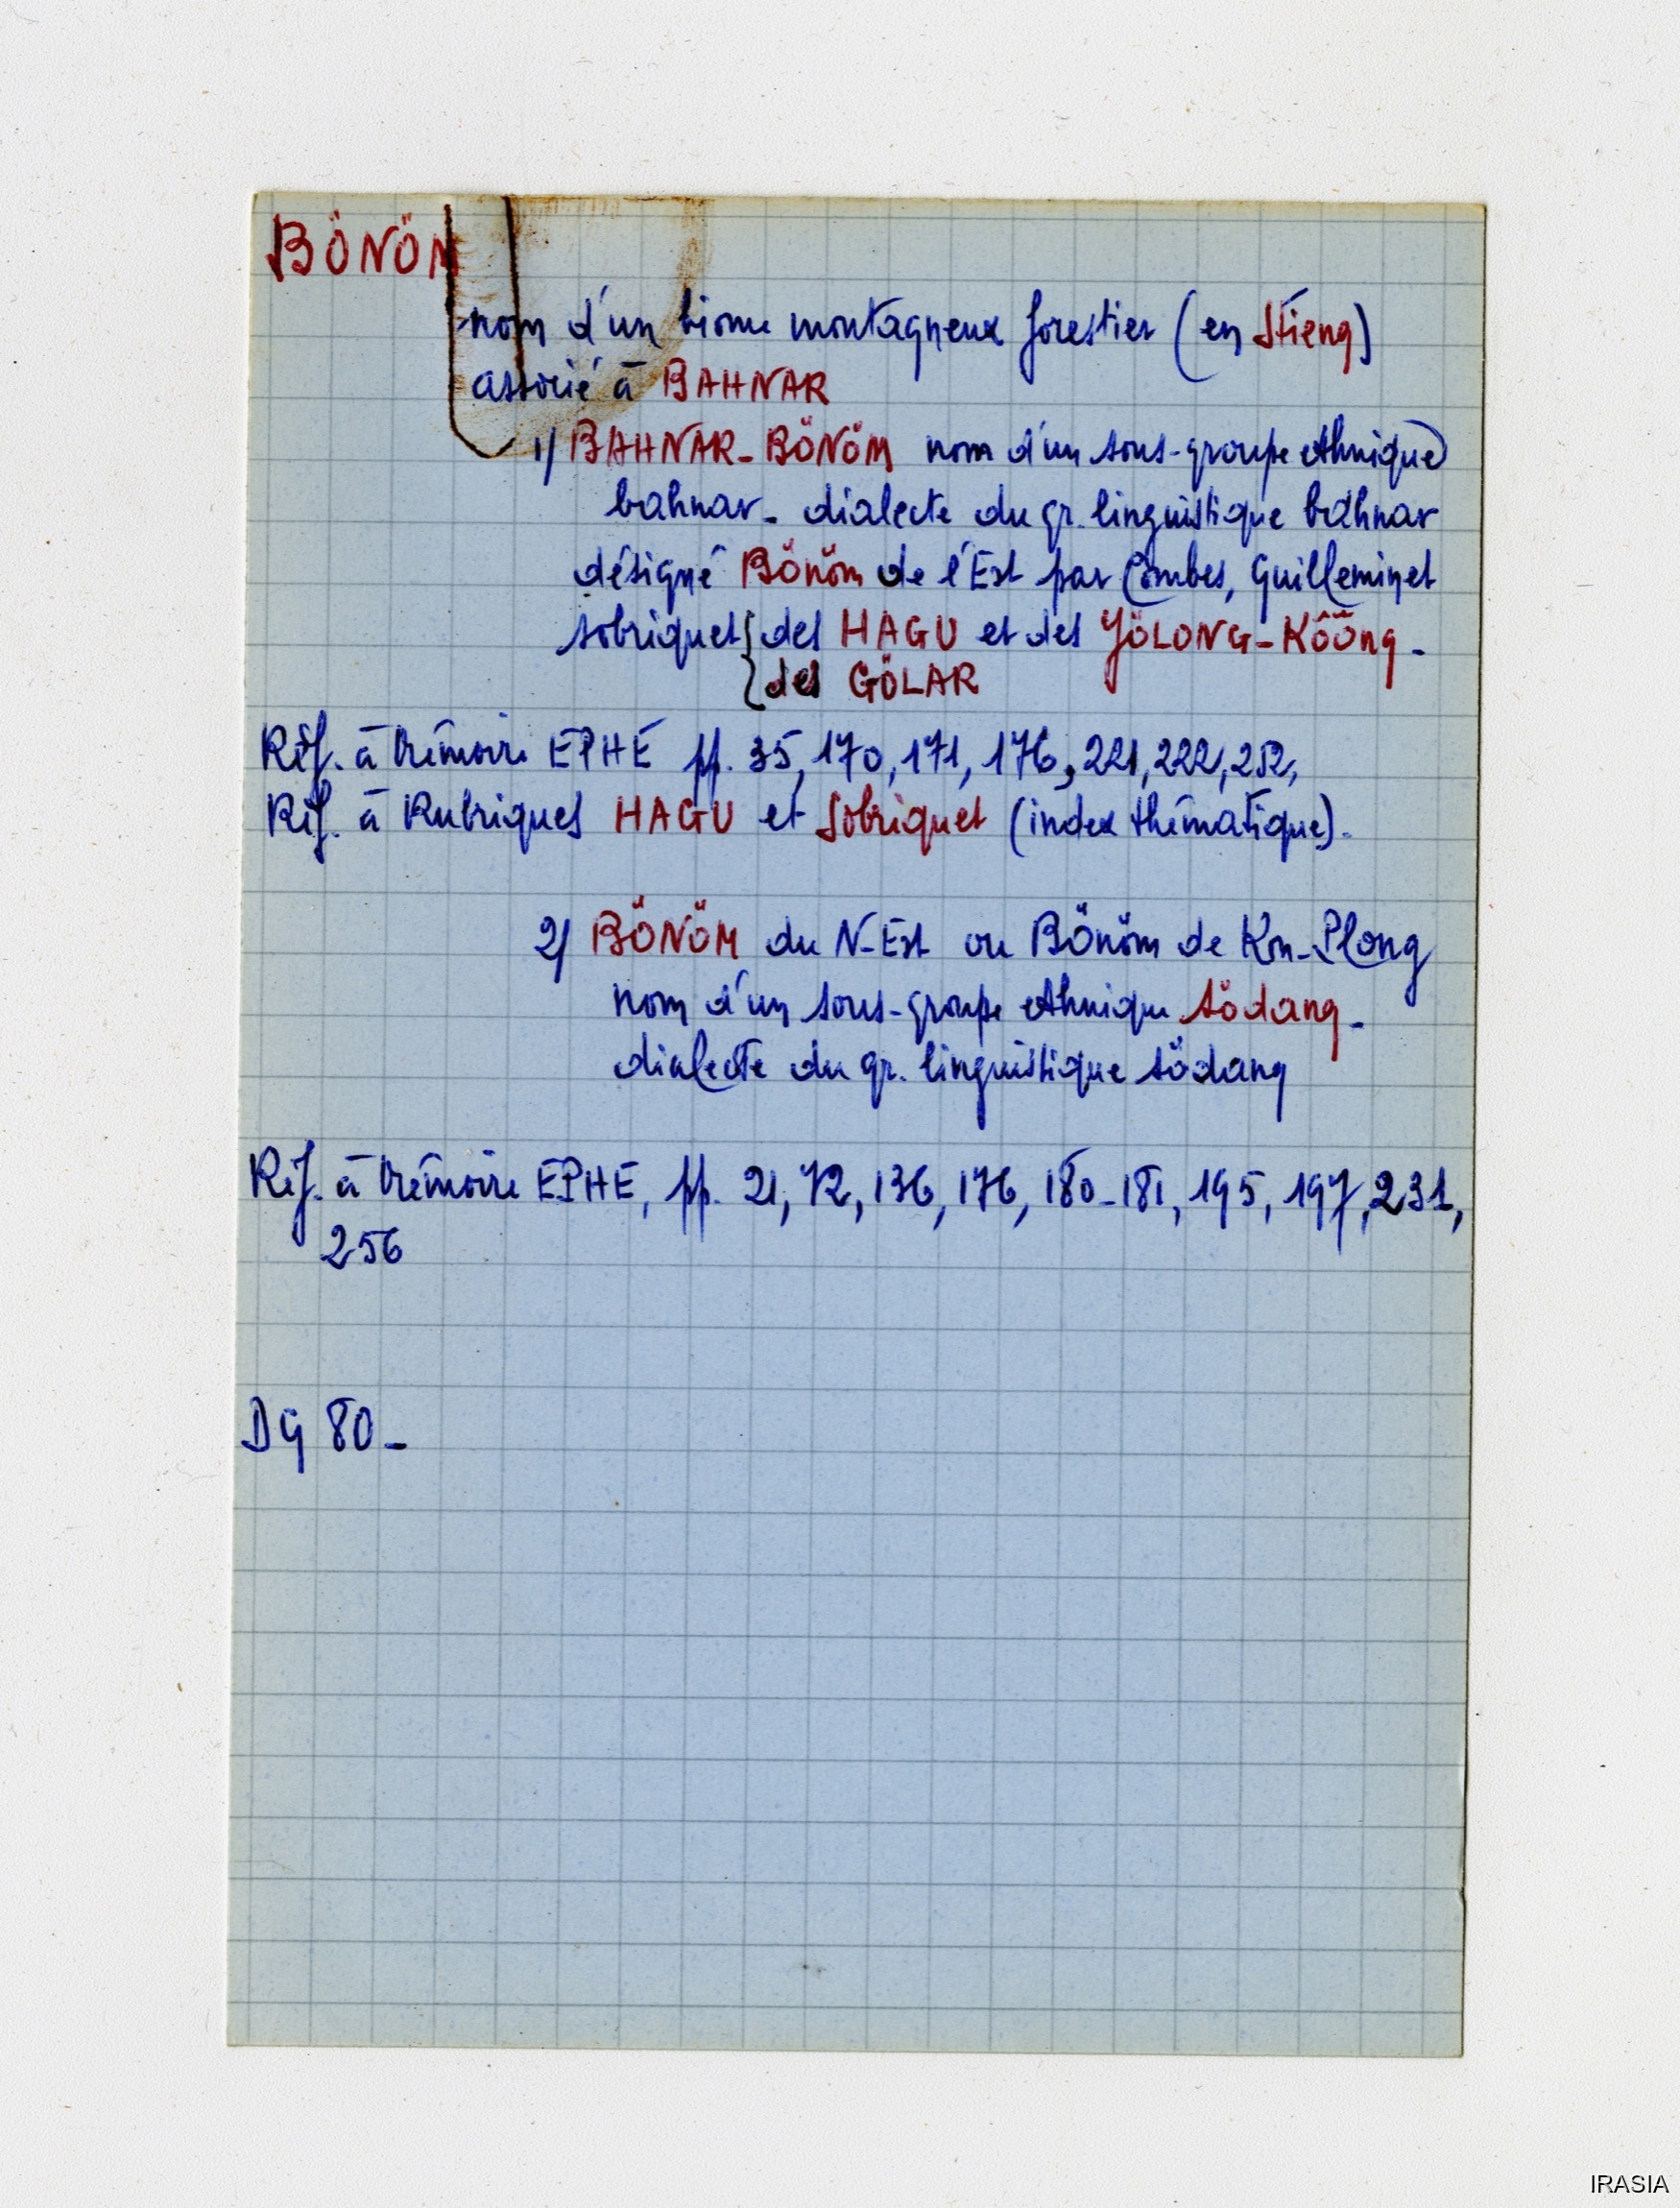 BÖNÖM
nom d'un biome montagneux forestier (en Stieng)
associé à BAHNAR
1/ BAHNAR-BÖNÖM nom d'un sous-groupe ethnique
bahnar - dialecte du gr. linguistique bahnar
désigné Bönöm de l'Est par Combes, Guilleminet
sobriquet { des HAGU et des YÖLONG-Kôông -
{ des GÖLAR
Réf. à Mémoire EPHE pp. 35, 170, 171, 176, 221, 222, 252,
Réf. à Rubriques HAGU et Sobriquet (index thématique).
2/ BÖNÖM du N-Est ou Bönöm de Kon-Plong
nom d'un sous-groupe ethnique södang -
dialecte du gr. linguistique södang
Réf. à Mémoire EPHE, pp. 21, 72, 136, 176, 180-181, 195, 197, 231,
256
DG 80 -
IRASIA